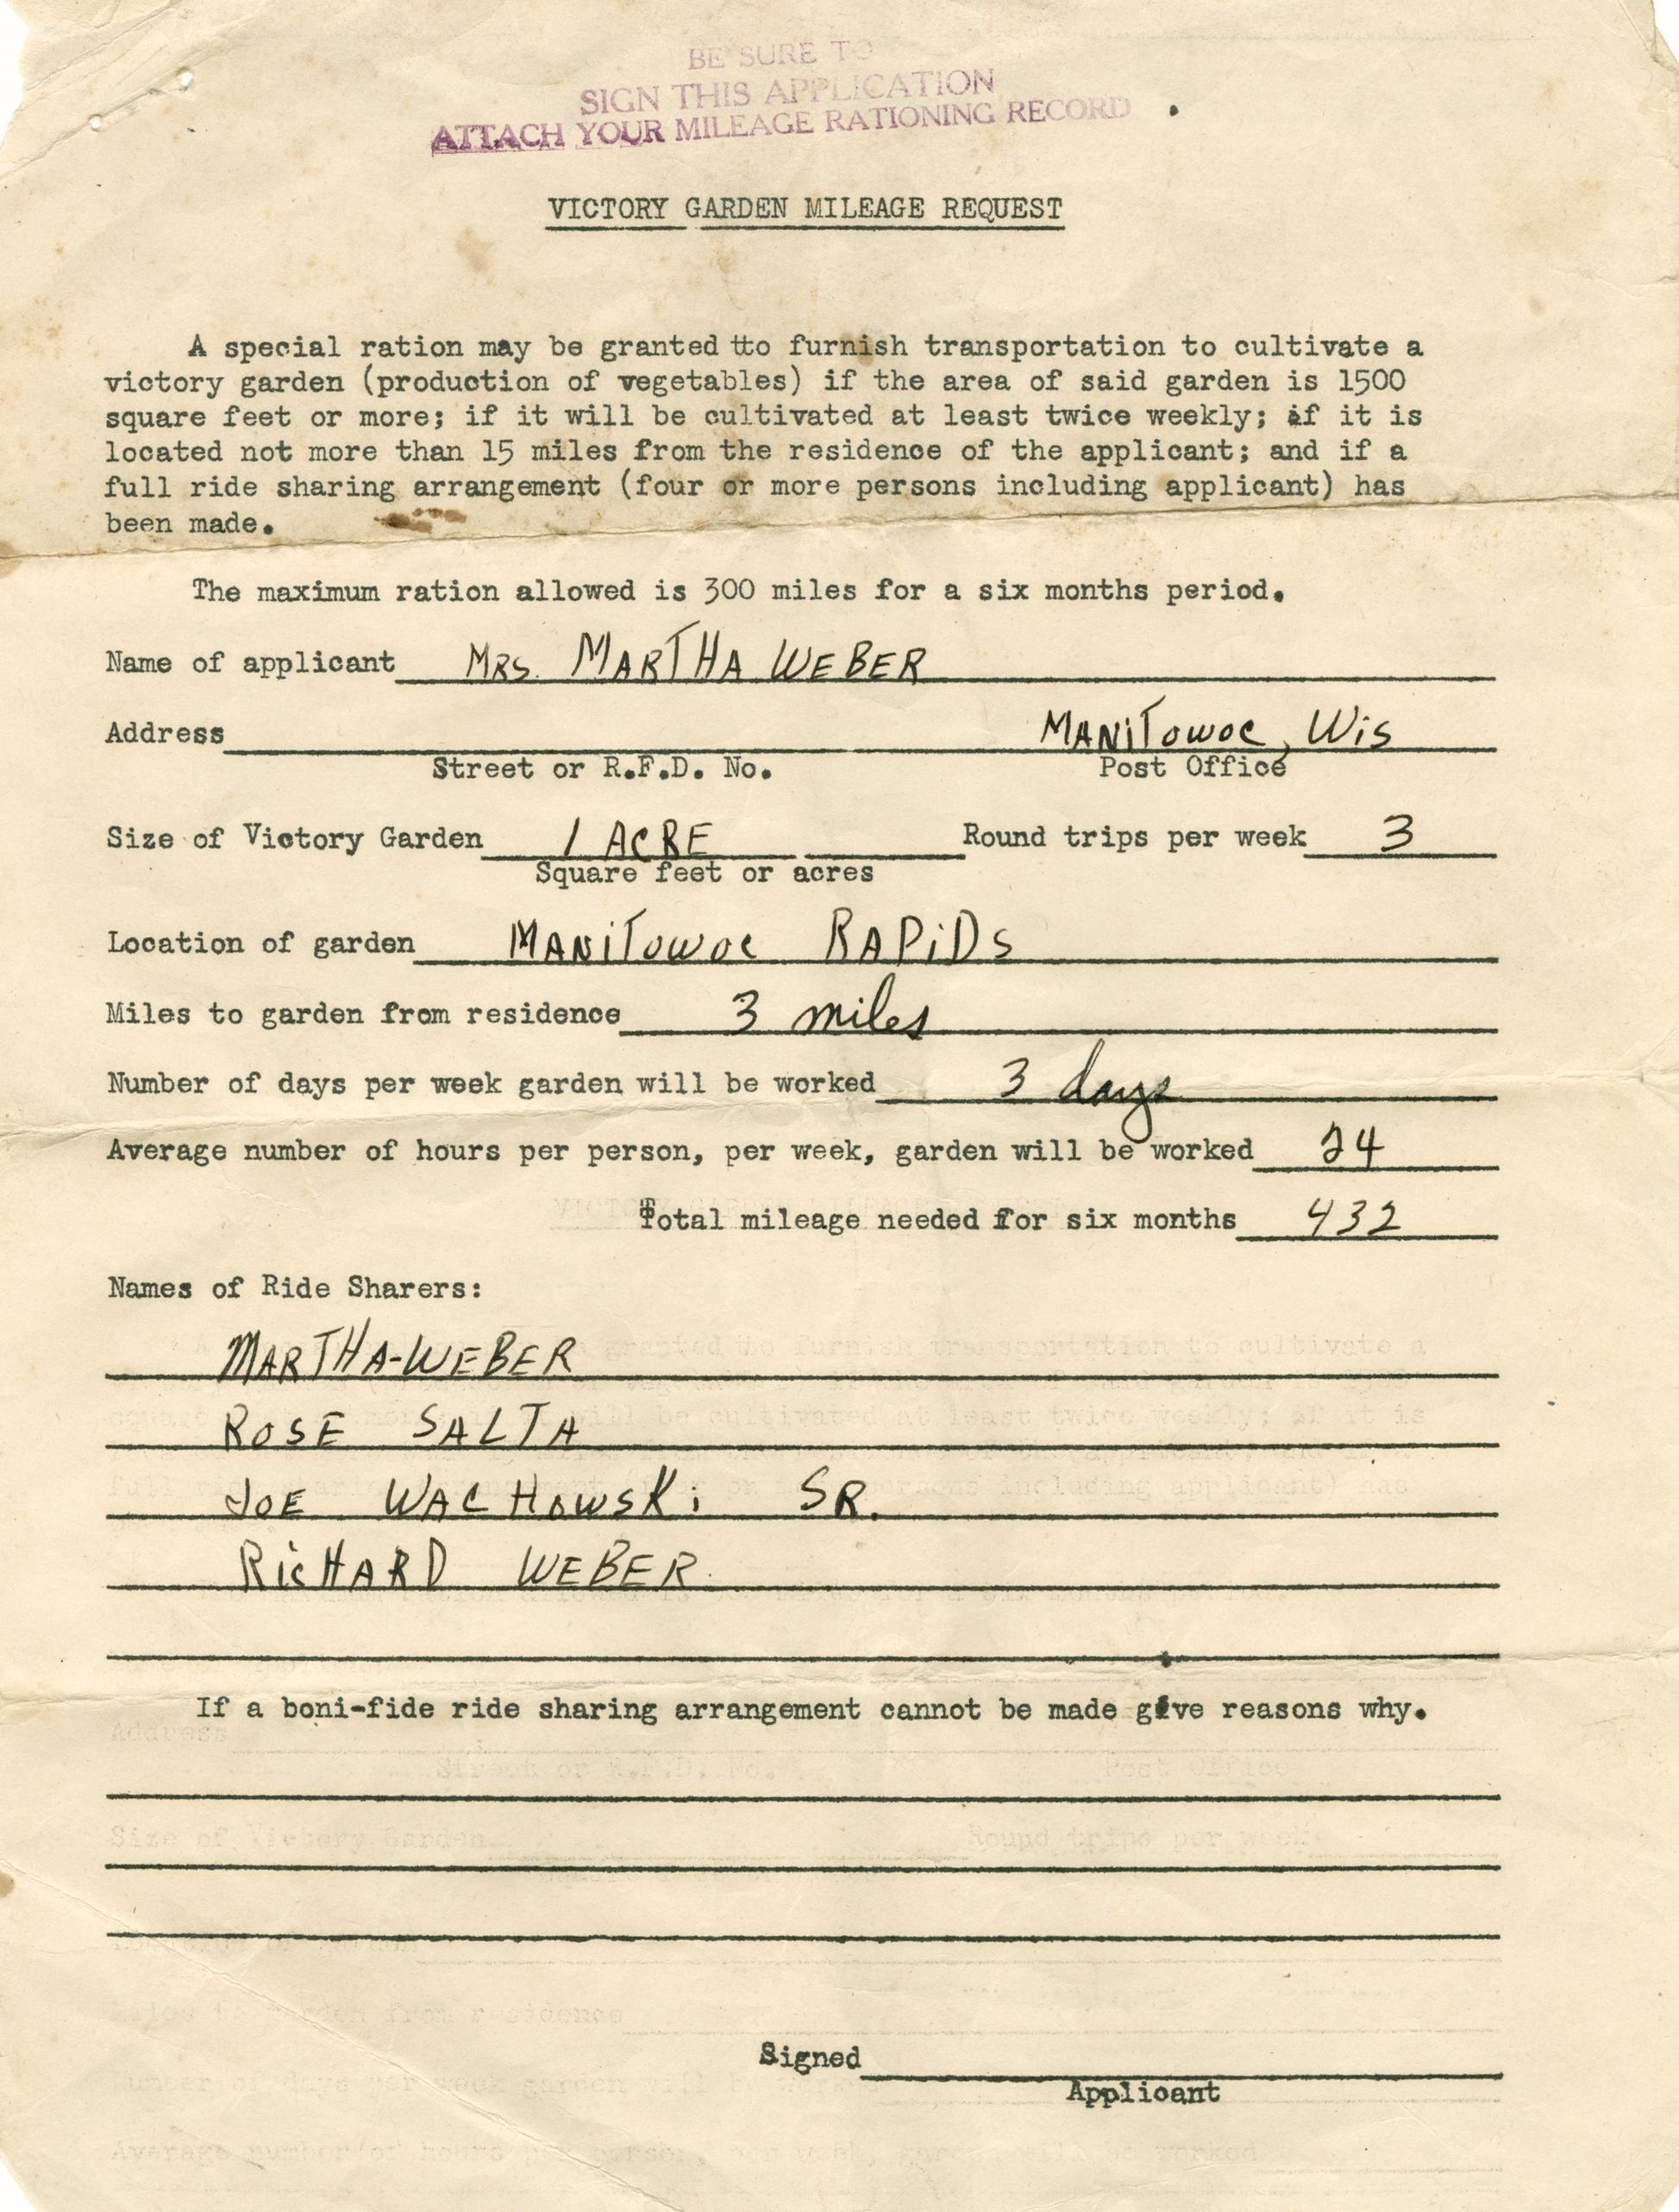 BE SURE TO
SIGN THIS APPLICATION
ATTACH YOUR MILEAGE RATIONING RECORD
VICTORY GARDEN MILEAGE REQUEST
A special ration may be granted tto furnish transportation to cultivate a
victory garden (production of vegetables) if the area of said garden is 1500
square feet or more; if it will be cultivated at least twice weekly; if it is
located not more than 15 miles from the residence of the applicant; and if a
full ride sharing arrangement (four or more persons including applicant) has
been made.
The maximum ration allowed is 300 miles for a six months period.
Name of applicant MRS. MARTHA WEBER
Address MANITOWOC, WIS
Street or R.F.D. No. Post Office
Size of Victory Garden 1 ACRE Round trips per week 3
Square feet or acres
Location of garden MANITOWOC RAPIDS
Miles to garden from residence 3 miles
Number of days per week garden will be worked 3 days
Average number of hours per person, per week, garden will be worked 24
Total mileage needed for six months 432
Names of Ride Sharers:
MARTHA-WEBER
ROSE SALTA
JOE WACHOWSKI SR.
RICHARD WEBER
If a boni-fide ride sharing arrangement cannot be made give reasons why.
Signed
Applicant